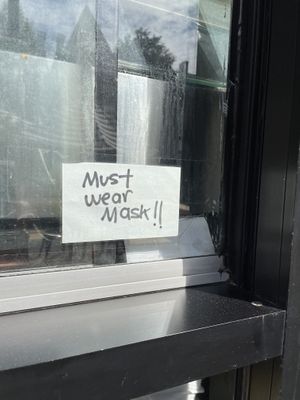 Must
wear
Mask!!